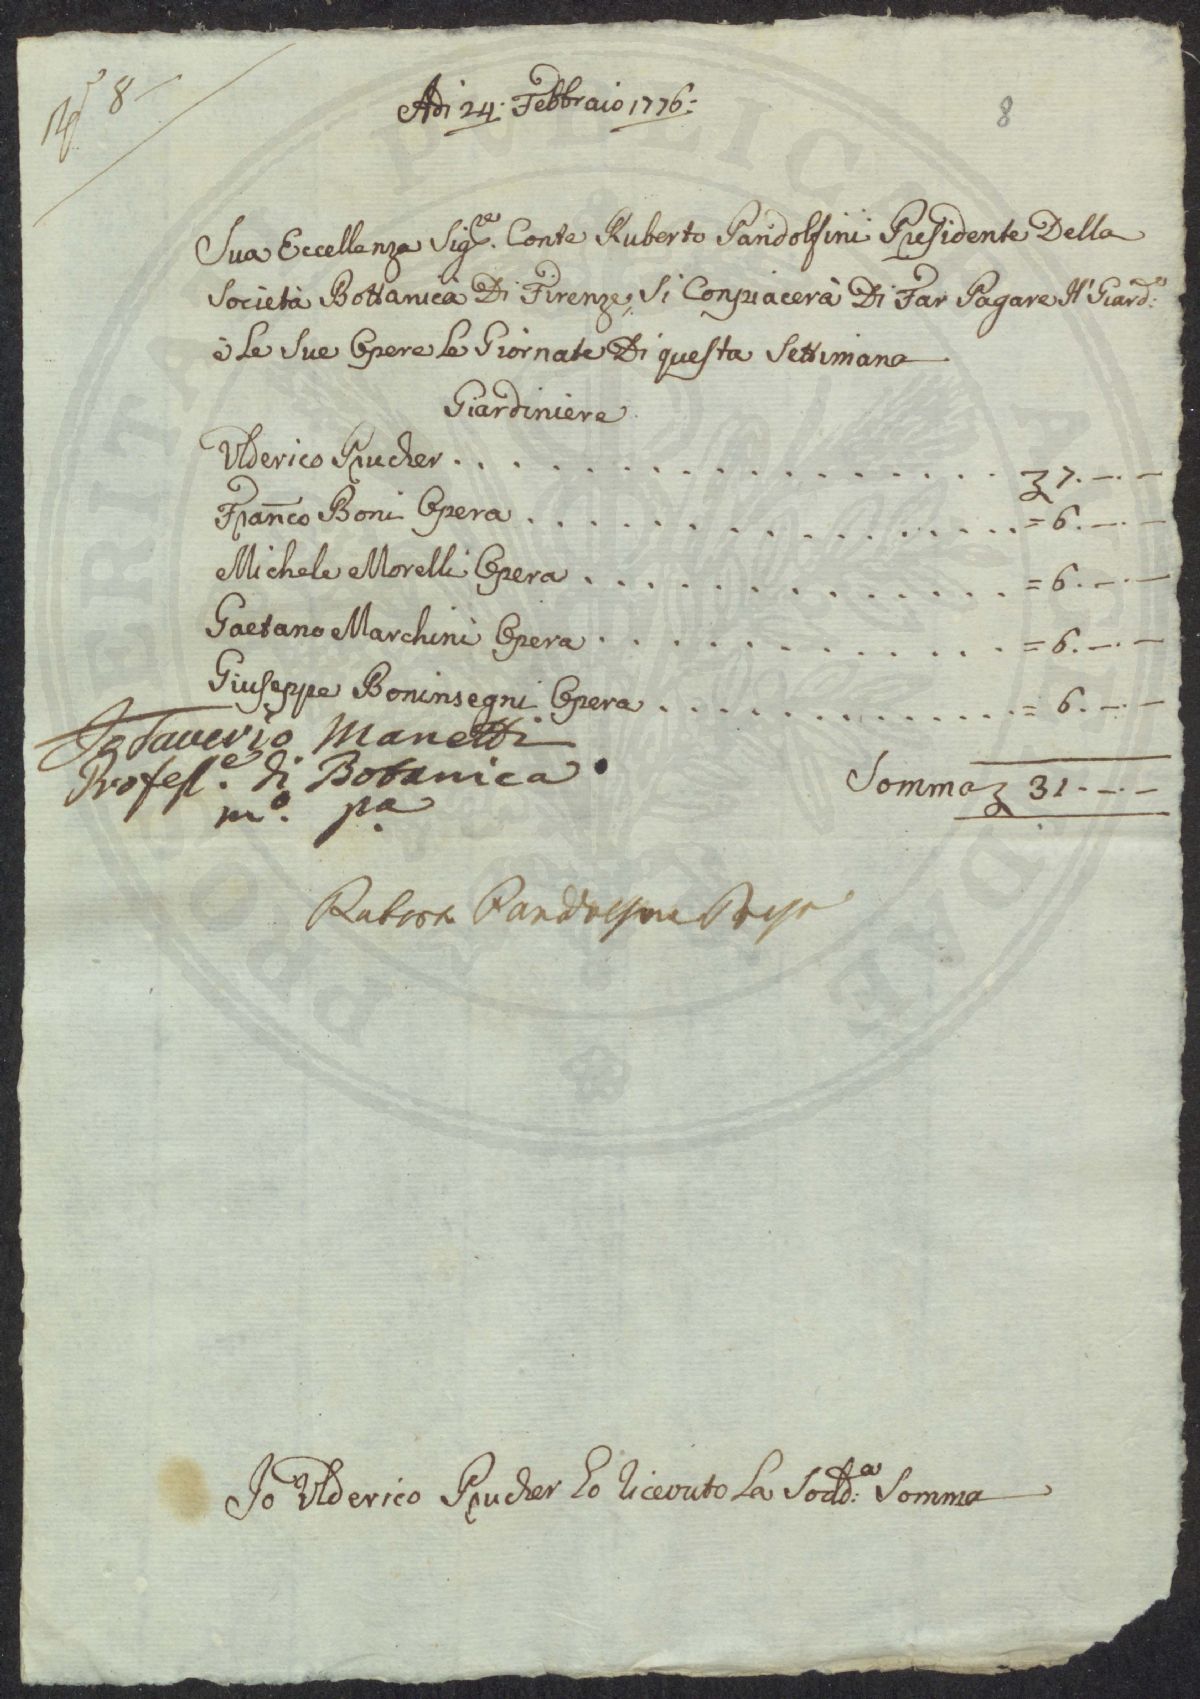 N.º 8
Adi 24. Febbraio 1776=
8
Sua Eccellenza Sig.re Conte Ruberto Pandolfini Presidente Della
Società Bottanica Di Firenze, Si Conpiacerà Di Far Pagare Il Giard:e
è Le Sue Opere Le Giornate Di questa Settimana
Giardiniere
Ulderico Prucher . . . . . . . . . . . . . . . . 7.—.—
Franco Boni Opera . . . . . . . . . . . . . . = 6.—.—
Michele Morelli Opera . . . . . . . . . . . . = 6.—.—
Gaetano Marchini Opera . . . . . . . . . . . = 6.—.—
Giuseppe Boninsegni Opera . . . . . . . . . . = 6.—.—
Io Saverio Manetti
Profess.e di Botanica
m.o p.a
Somma 31.—.—
Ruberto Pandolfini Presi
Io Ulderico Prucher Ho Ricevuto La Sodd:a Somma